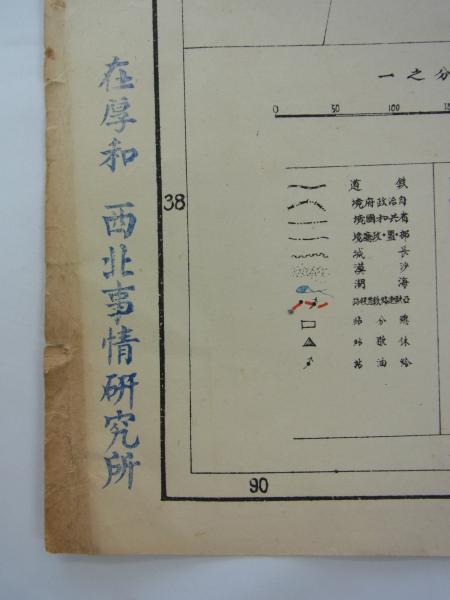 在厚和 西北事情研究所
分之一
0 50 100
38
鉄道
自治政府境
省共和國境
部・盟・政廳境
長城
沙漠
海湖
分站
休歇站
給油站
90